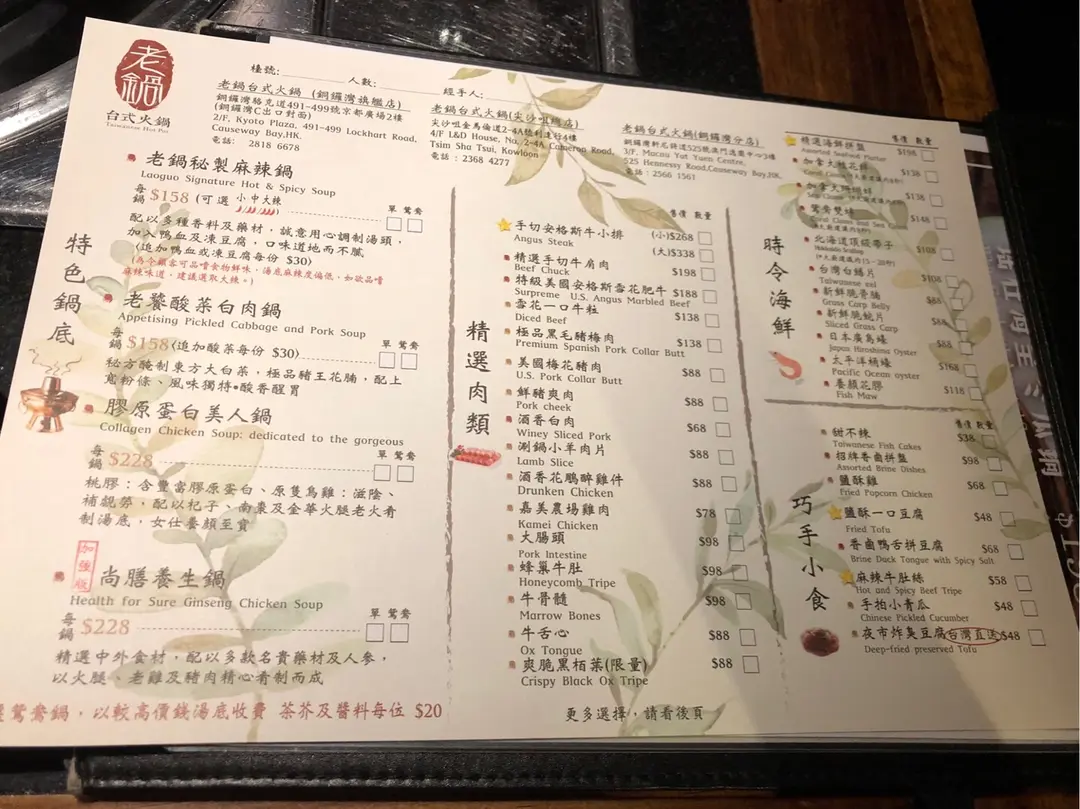 老鍋
台式火鍋
Taiwanese Hot Pot
檯號:
人數:
經手人:
老鍋台式火鍋 (銅鑼灣旗艦店)
銅鑼灣駱克道491-499號京都廣場2樓
(銅鑼灣C出口對面)
2/F, Kyoto Plaza, 491-499 Lockhart Road,
Causeway Bay,HK.
電話: 2818 6678
老鍋台式火鍋(尖沙咀總店)
尖沙咀金馬倫道2-4A號利達行4樓
4/F L&D House, No. 2-4A Cameron Road,
Tsim Sha Tsui, Kowloon
電話: 2368 4277
老鍋台式火鍋(銅鑼灣分店)
銅鑼灣軒尼詩道525號澳門逸園中心3樓
3/F, Macau Yat Yuen Centre,
525 Hennessy Road,Causeway Bay,HK.
電話: 2566 1561
特色鍋底
老鍋秘製麻辣鍋
Laoguo Signature Hot & Spicy Soup
每鍋 $158 (可選 小中大辣)
單 鴛鴦
配以多種香料及藥材,誠意用心調制湯頭,
加入鴨血及凍豆腐,口味道地而不膩
(追加鴨血或凍豆腐每份 $30)
(為令顧客可品嚐食物鮮味,湯底麻辣度偏低,如欲品嚐
麻辣味道,建議選取大辣。)
老饕酸菜白肉鍋
Appetising Pickled Cabbage and Pork Soup
每鍋 $158(追加酸菜每份 $30)
單 鴛鴦
秘方醃制東方大白菜,極品豬王花腩,配上
寬粉條、風味獨特•酸香醒胃
膠原蛋白美人鍋
Collagen Chicken Soup; dedicated to the gorgeous
每鍋 $228
單 鴛鴦
桃膠:含豐富膠原蛋白、原隻烏雞:滋陰、
補髋勞,配以杞子、南棗及金華火腿老火肴
制湯底,女仕養顏至寶
加強版
尚膳養生鍋
Health for Sure Ginseng Chicken Soup
每鍋 $228
單 鴛鴦
精選中外食材,配以多款名貴藥材及人參,
以火腿、老雞及豬肉精心肴制而成
鴛鴦鍋,以較高價錢湯底收費 茶芥及醬料每位 $20
精選肉類
售價 數量
手切安格斯牛小排 (小)$268
Angus Steak (大)$338
精選手切牛肩肉 $198
Beef Chuck
特級美國安格斯雪花肥牛 $188
Surpreme U.S. Angus Marbled Beef
雪花一口牛粒 $138
Diced Beef
極品黑毛豬梅肉 $138
Premium Spanish Pork Collar Butt
美國梅花豬肉 $88
U.S. Pork Collar Butt
鮮豬爽肉 $88
Pork cheek
酒香白肉 $68
Winey Sliced Pork
涮鍋小羊肉片 $88
Lamb Slice
酒香花鵰醉雞件 $88
Drunken Chicken
嘉美農場雞肉 $78
Kamei Chicken
大腸頭 $98
Pork Intestine
蜂巢牛肚 $98
Honeycomb Tripe
牛骨髓 $98
Marrow Bones
牛舌心 $88
Ox Tongue
爽脆黑栢葉(限量) $88
Crispy Black Ox Tripe
更多選擇,請看後頁
時令海鮮
售價 數量
精選海鮮拼盤 $198
Assorted Seafood Platter
加拿大桂花蚌 $138
加拿大珊瑚蚌 $138
鴛鴦雙蚌 $148
北海道頂級帶子 $108
Hokkaido Scallop
台灣白鱔片 $108
Taiwanese eel
新鮮脆骨腩 $88
Grass Carp Belly
新鮮脆鯇片 $88
Sliced Grass Carp
日本廣島蠔 $88
Japan Hiroshima Oyster
太平洋桶蠔 $168
Pacific Ocean oyster
養顏花膠 $118
Fish Maw
巧手小食
售價 數量
甜不辣 $38
Taiwanese Fish Cakes
招牌香鹵拼盤 $98
Assorted Brine Dishes
鹽酥雞 $68
Fried Popcorn Chicken
鹽酥一口豆腐 $48
Fried Tofu
香鹵鴨舌拼豆腐 $68
Brine Duck Tongue with Spicy Salt
麻辣牛肚絲 $58
Hot and Spicy Beef Tripe
手拍小青瓜 $48
Chinese Pickled Cucumber
夜市炸臭豆腐台灣直送 $48
Deep-fried preserved Tofu